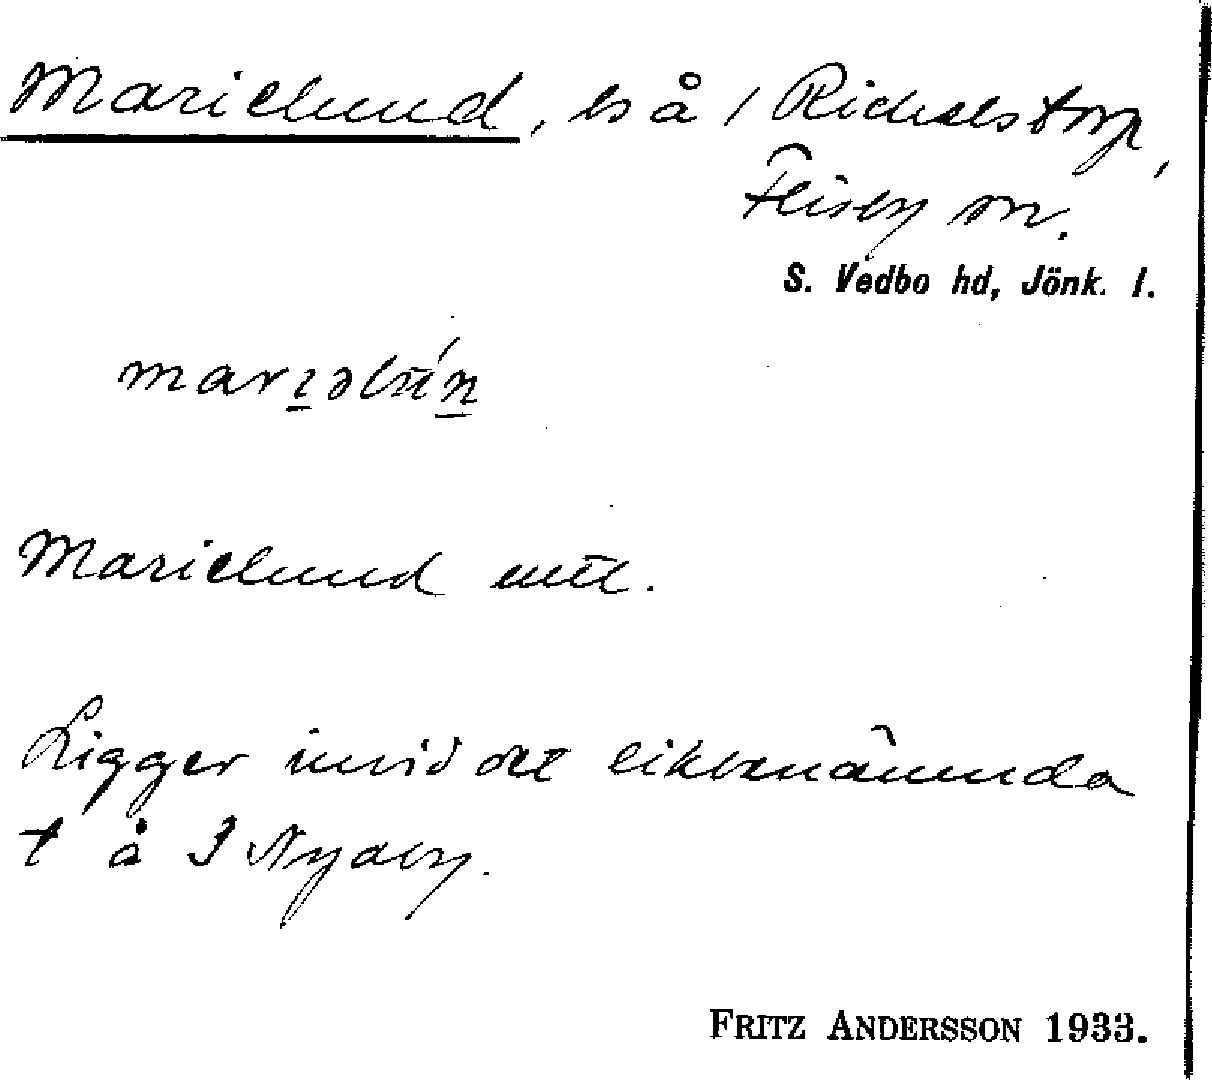 Marielund, ls å 1 Richelstorp,
Flisby sn.
S. Vedbo hd, Jönk. l.
Marielund utt.
Ligger invid det liktnämnda
t å 3 Nyaby.
FRITZ ANDERSSON 1933.